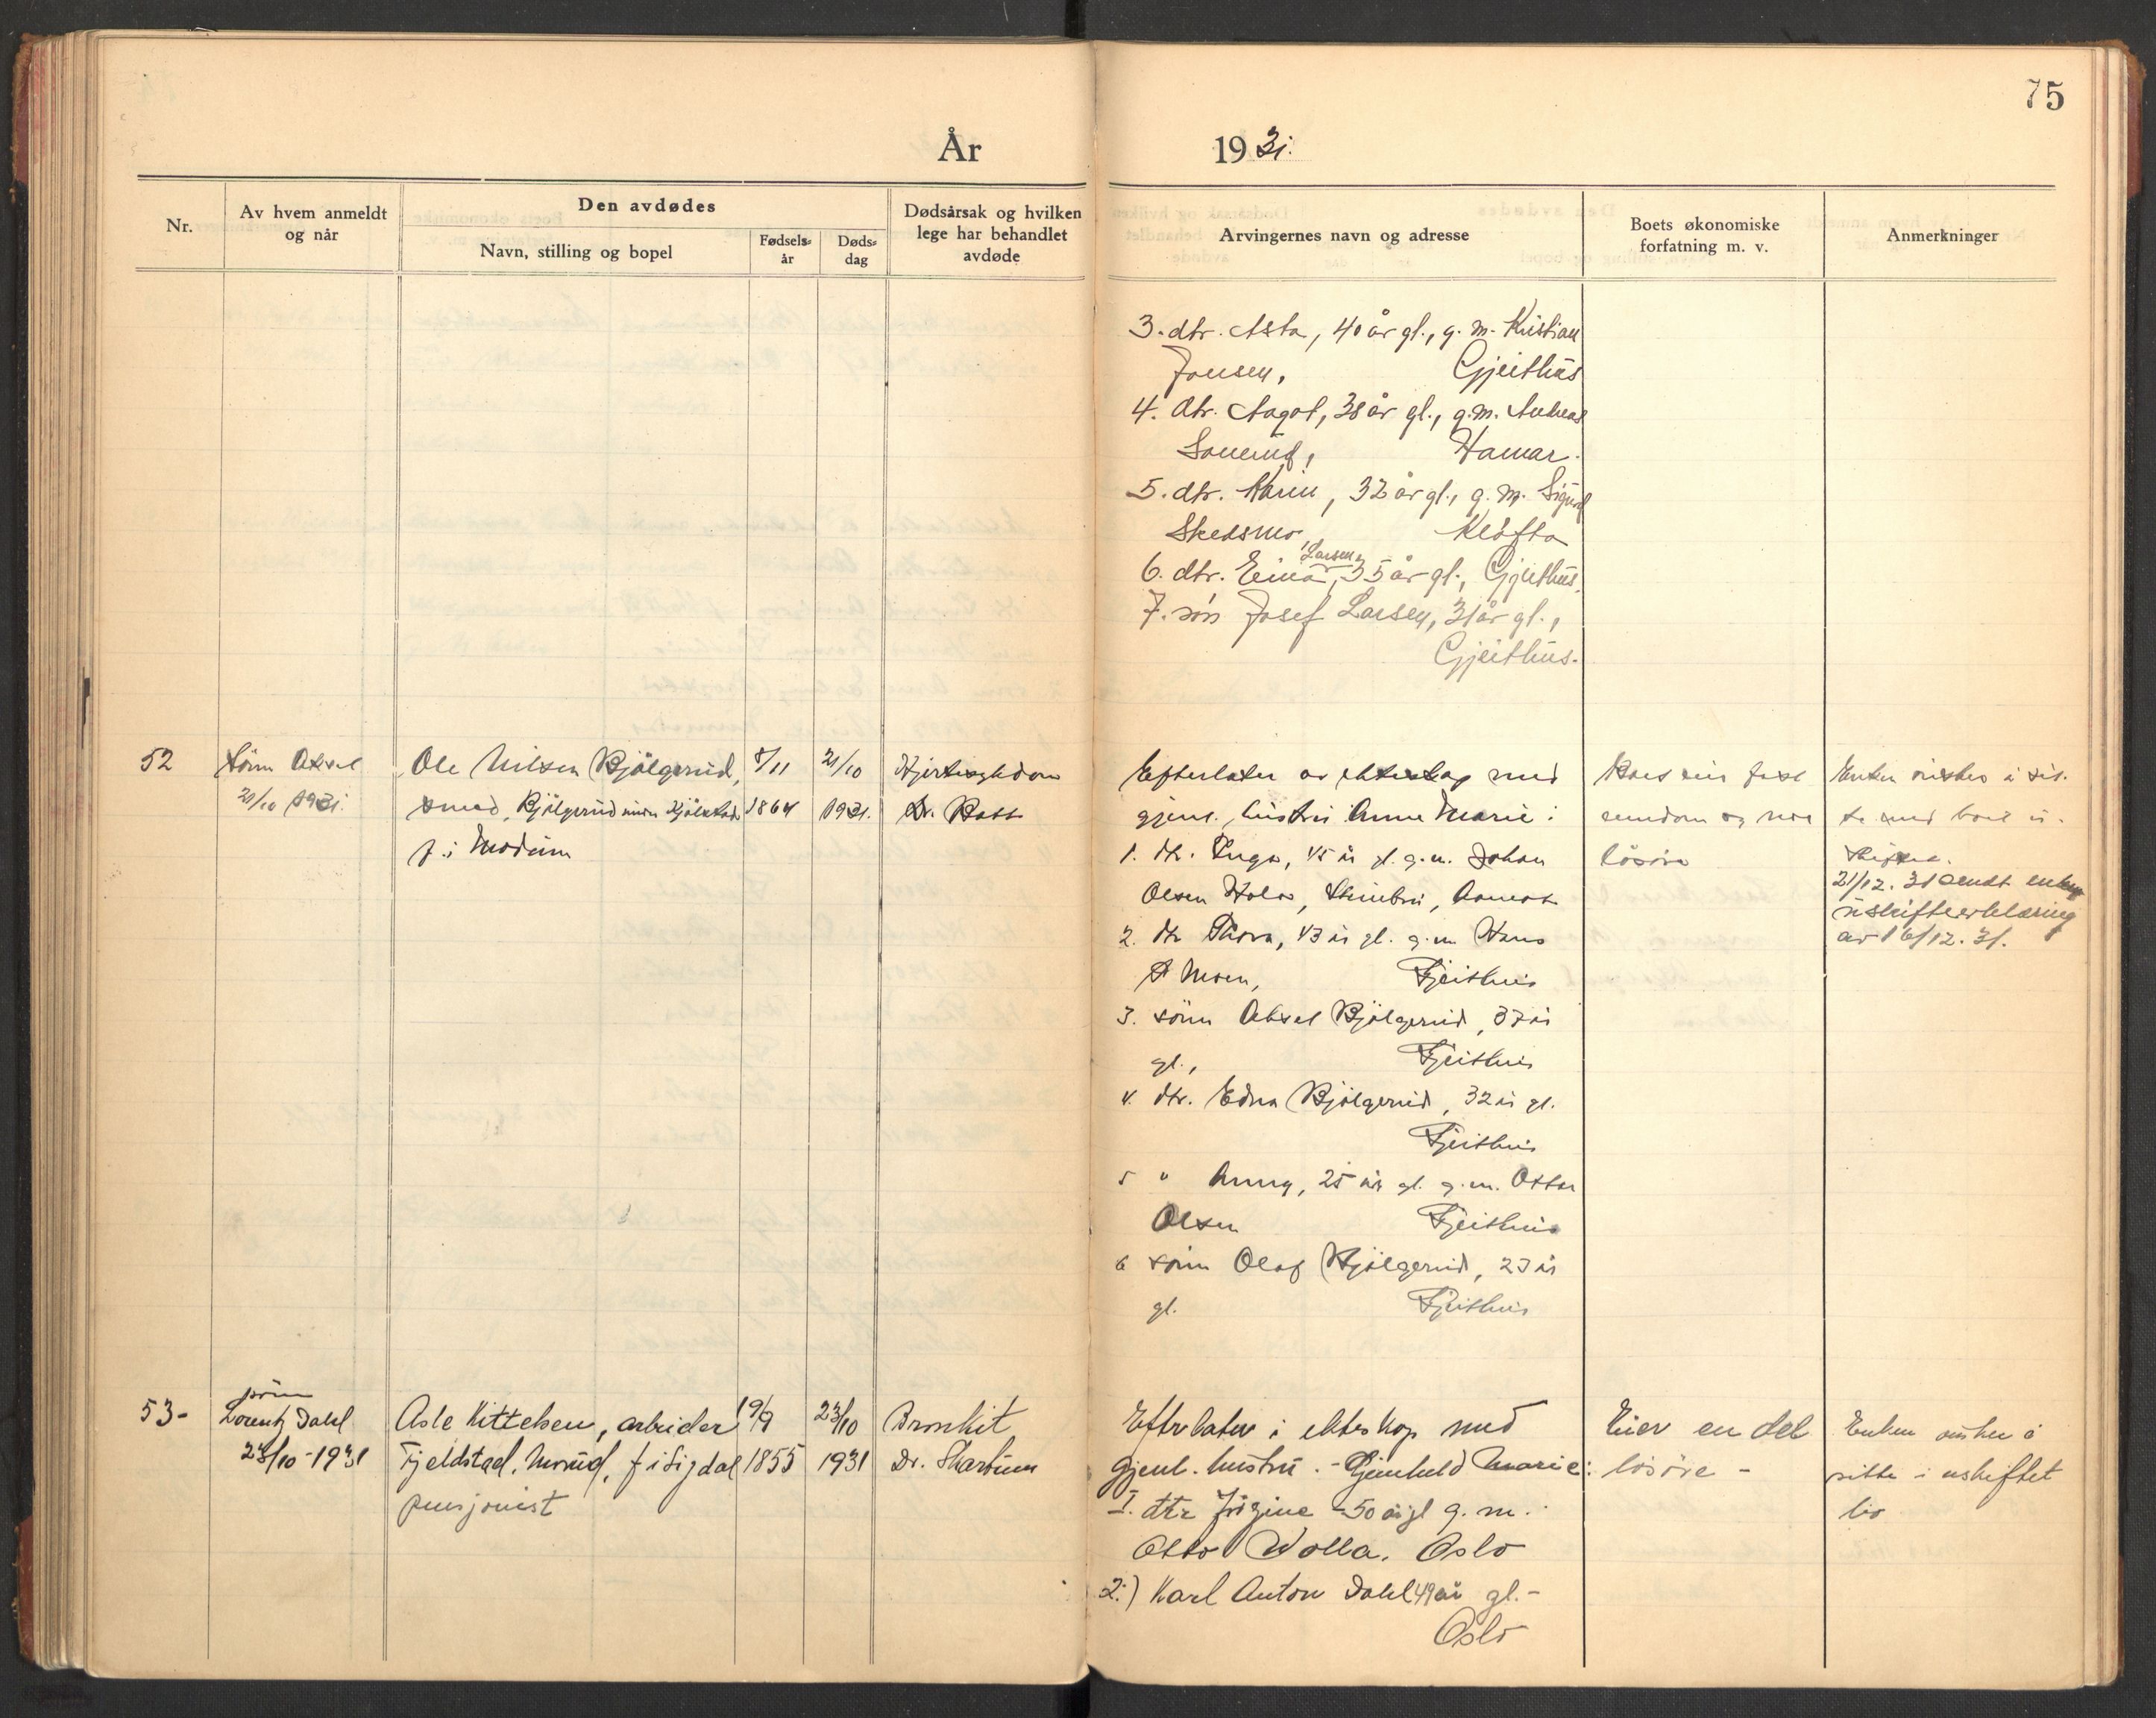 75
År 1931.
Nr.
Av hvem anmeldt
og når
Den avdødes
Navn, stilling og bopel
Fødsels-
år
Døds-
dag
Dødsårsak og hvilken
lege har behandlet
avdøde
Arvingernes navn og adresse
Boets økonomiske
forfatning m. v.
Anmerkninger
3. dtr. Asta, 40 år gl., g. m. Kristian
Jonsen, Gjeithus
4. dtr. Aagot, 38 år gl., g.m. Andreas
Sonerud, Hamar.
5. dtr. Karin, 32 år gl., g. m. Sigurd
Skedsmo, Kløfta
Larsen
6. dtr. Eina, 35 år gl., Gjeithus.
7. søn Josef Larsen, 31 år gl.,
Gjeithus.
52
Sønn Aksel
21/10 1931.
Ole Nilsen Bjölgerud,
smed, Bjölgerud under Kjölstad
f. i Modum
8/11
1864
21/10
1931.
Hjertesykdom
Dr. Bast
Efterlater av ekteskap med
gjenl. hustru Anne Marie:
1. dtr. Inga, 45 år gl. g.m. Johan
Olsen Holm, Steinbru, Aamot
2. dtr Thora, 43 år gl. g.m Hans
A Moen, Gjeithus
3. sönn Aksel Bjölgerud, 37 år
gl., Gjeithus
4. dtr. Edna Bjölgerud, 32 år gl.
Gjeithus
5 " Anny, 25 år gl. g.m. Ottar
Olsen Gjeithus
6 sönn Olaf Bjölgerud, 23 år
gl. Gjeithus
Boet eier fast
eiendom og noe
lösöre
Enken önsker å sit-
te med boet u-
skiftet.
21/12. 31 sendt enken
uskifteerklæring
av 16/12. 31.
53-
sönn
Lorentz Dahl
24/10-1931
Asle Kittelsen, arbeider
Fjeldstad, Morud, f i Sigdal
pensjonist
19/9
1855
23/10
1931
Bronkit
Dr. Skartum
Efterlater i ekteskap med
gjenl. hustru - Gunhild Marie:
1. dtr Jörgine - 50 år gl g. m.
Otto Wolla. Oslo
2.) Karl Anton Dahl 49 år gl.-
Oslo
Eier en del
lösöre -
Enken önsker å
sitte i uskiftet
bo